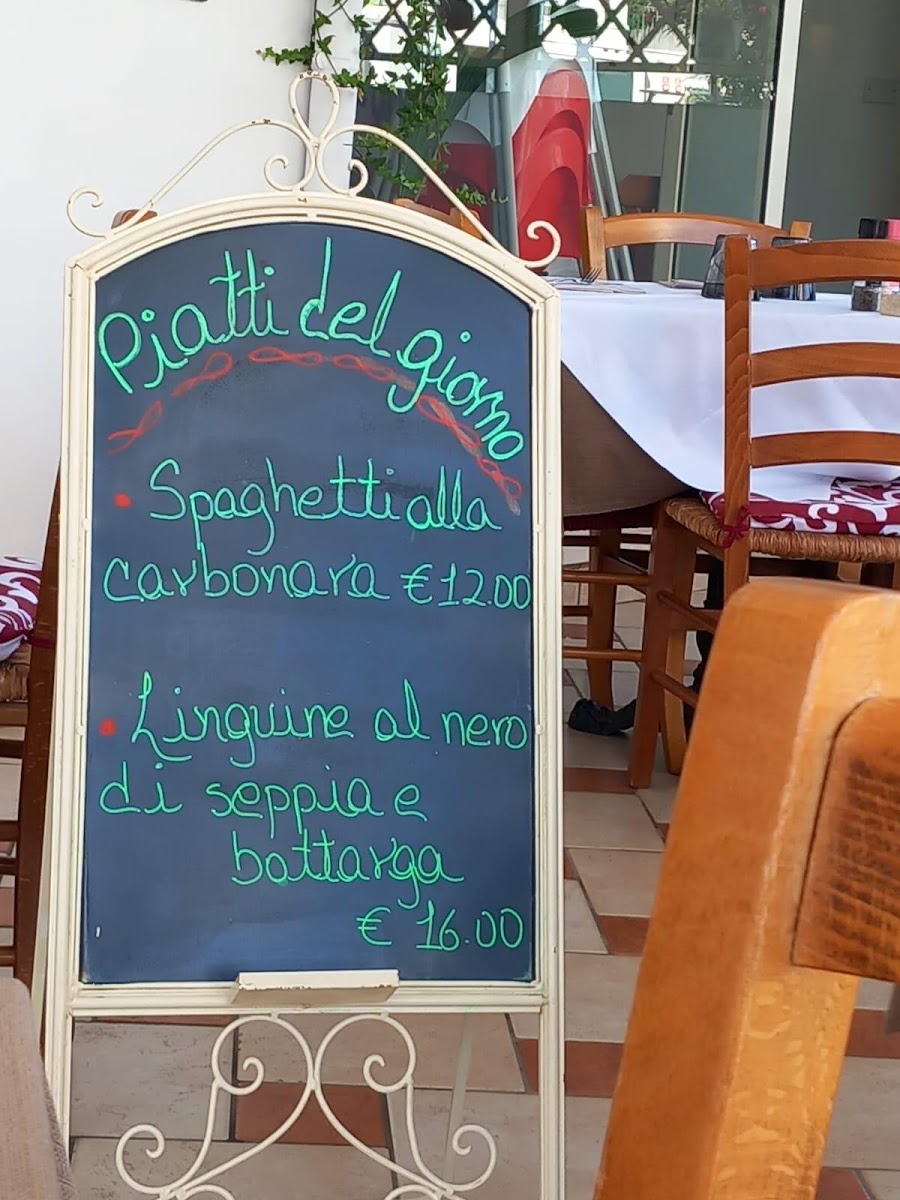 Piatti del giorno
• Spaghetti alla
carbonara €12.00
• Linguine al nero
di seppia e
bottarga
€ 16.00